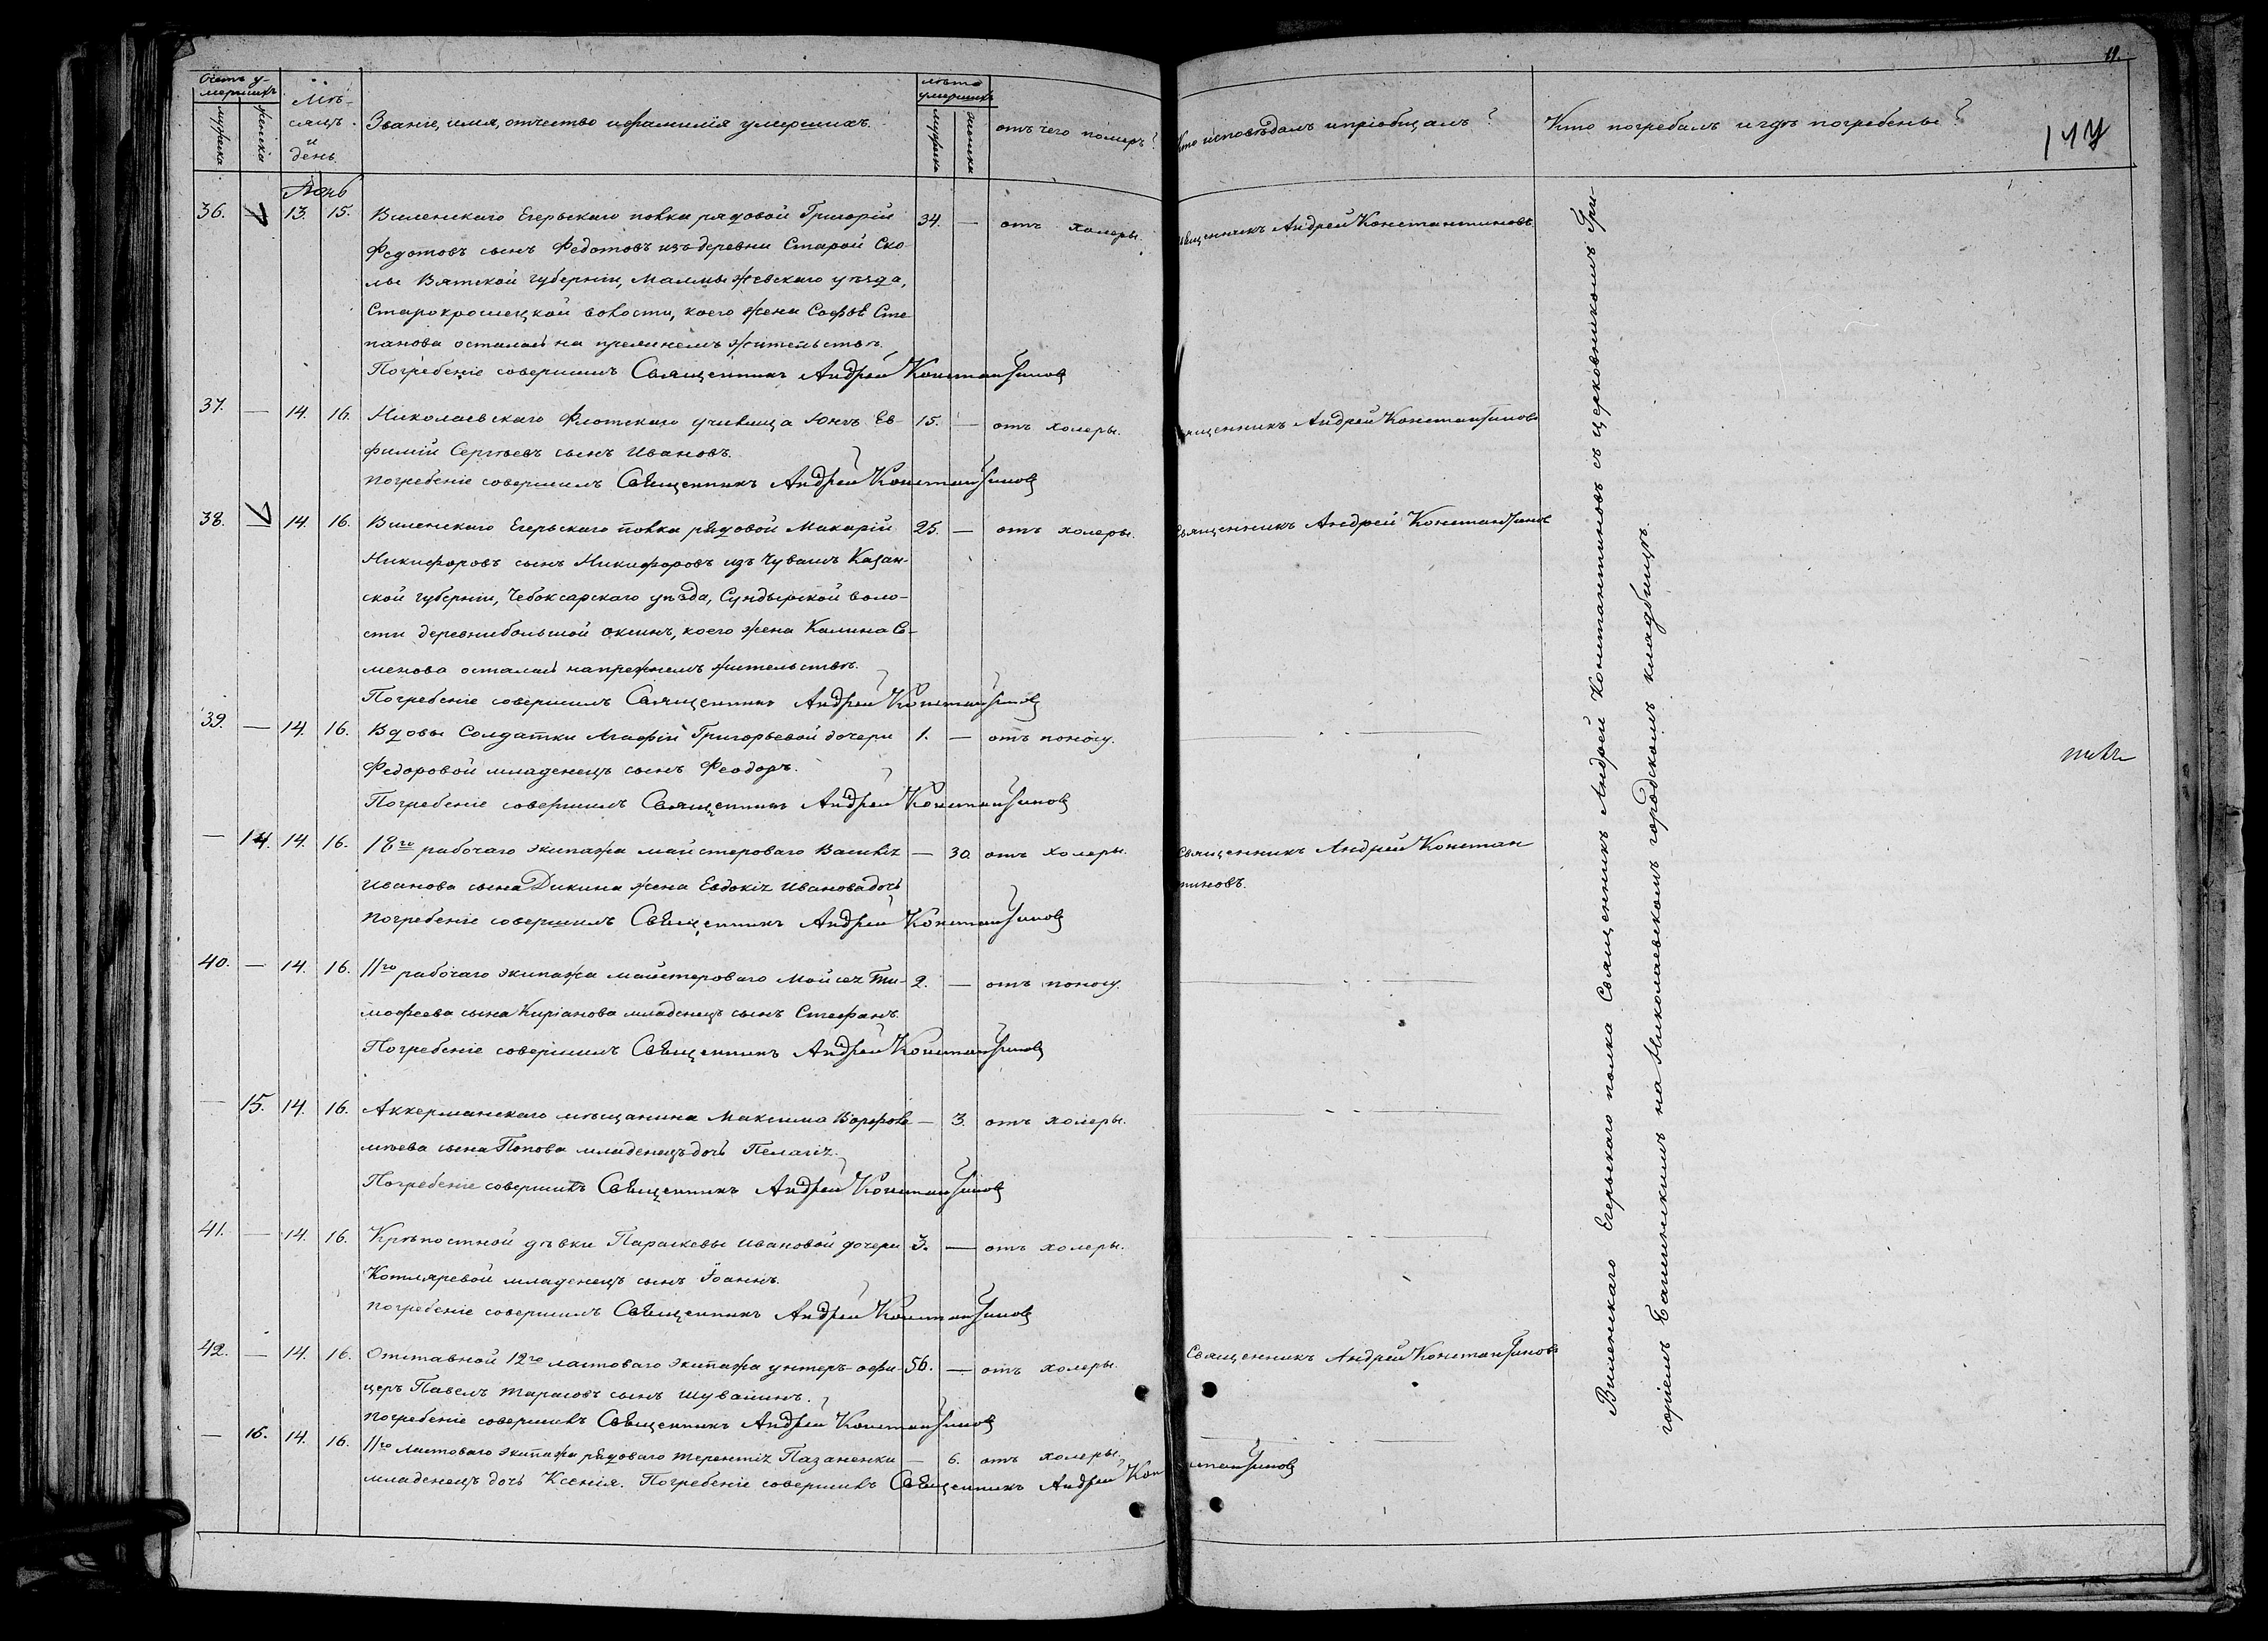 11.
147
Счетъ умершихъ
мужеска
женска
Мѣсяцъ и день.
Званіе, имя, отчество и фамилія умершихъ.
лѣта умершихъ
мужеска
женска
отъ чего померъ?
Кто исповѣдалъ и пріобщалъ?
Кто погребалъ и гдѣ погребены?
36. — 13. 15. Виленскаго Егерьскаго полка рядовой Григорій 34. — отъ холеры. Священникъ Андрей Константиновъ
Федотовъ сынъ Федотовъ изъ деревни Старой
Вятской губерніи, Малмыжевскаго уѣзда,
волости, коего жена Софья Сте-
панова осталась на прежнемъ жительствѣ.
Погребеніе совершилъ Священникъ Андрей Константиновъ
37. — 14. 16. Николаевскаго Флотскаго училища Юнга Ев- 15. — отъ холеры. Священникъ Андрей Константиновъ
фимій Сергѣевъ сынъ Ивановъ.
Погребеніе совершилъ Священникъ Андрей Константиновъ
38. — 14. 16. Виленскаго Егерьскаго полка рядовой Макарій 25. — отъ холеры. Священникъ Андрей Константинов
Никифоровъ сынъ Никифоровъ изъ Чувашъ Казан-
ской губерніи, Чебоксарскаго уѣзда, Сундырской воло-
сти деревни большой оксинъ, коего жена Калина Се-
менова осталась на прежнемъ жительствѣ.
Погребеніе совершилъ Священникъ Андрей Константиновъ
39. — 14. 16. Вдовы Солдатки Агафіи Григорьевой дочери 1. — отъ поносу.
Федоровой младенецъ сынъ Феодоръ.
Погребеніе совершилъ Священникъ Андрей Константиновъ
— 14. 14. 16. 18го рабочаго экипажа майстероваго Василія — 30 отъ холеры. Священникъ Андрей Констан
тиновъ.
Иванова сына Дикина жена Евдокія Иванова дочь
Погребеніе совершилъ Священникъ Андрей Константиновъ
40. — 14. 16. 11го рабочаго экипажа майстероваго Мойсея Ти- 2. — отъ поносу.
мофеева сына Киріанова младенецъ сынъ Стефанъ.
Погребеніе совершилъ Священникъ Андрей Константиновъ
— 15. 14. 16. Аккерманскаго мѣщанина Максима Ворфоло — 3. отъ холеры.
мѣева сына Попова младенецъ дочь Пелагія.
Погребеніе совершилъ Священникъ Андрей Константиновъ
41. — 14. 16. Крѣпостной дѣвки Параскевы Ивановой дочери 3. — отъ холеры.
Котляревой младенецъ сынъ Іоаннъ.
Погребеніе совершилъ Священникъ Андрей Константиновъ
42. — 14. 16. Отставной 12го ластоваго экипажа унтеръ-офи- 56. — отъ холеры. Священникъ Андрей Константиновъ
церъ Павелъ Тарасовъ сынъ Шувалинъ.
Погребеніе совершилъ Священникъ Андрей Константиновъ
— 16. 14. 16. 11го ластоваго экипажа рядоваго Терентія Пазаненки — 6. отъ холеры.
младенецъ дочь Ксенія. Погребеніе совершилъ Священникъ Андрей Константиновъ
Виленскаго Егерьскаго полка Священникъ Андрей Константиновъ съ церковникомъ Гри-
горіемъ на Николаевскомъ городскомъ кладбищѣ.